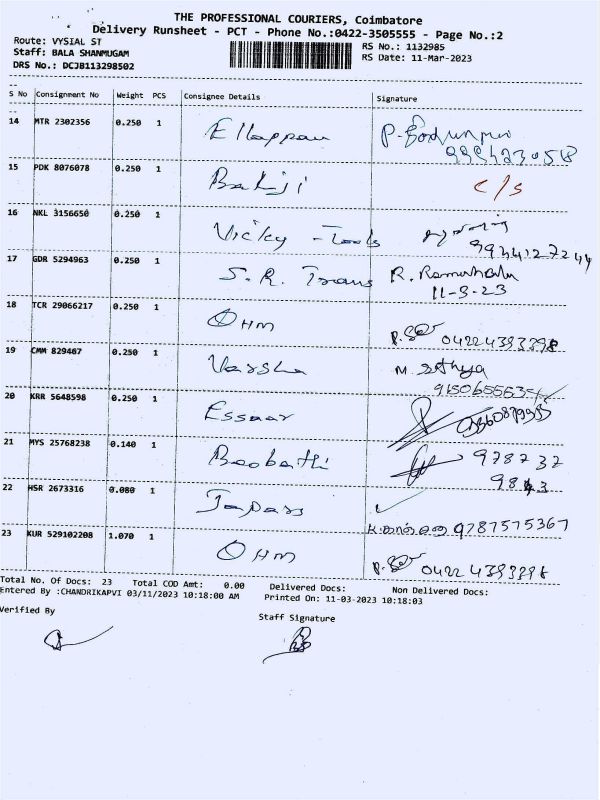 THE PROFESSIONAL COURIERS, Coimbatore
Delivery Runsheet - PCT - Phone No.:0422-3505555 - Page No.:2
Route: VYSIAL ST
RS No.: 1132985
Staff: BALA SHANMUGAM
RS Date: 11-Mar-2023
DRS No.: DCJB113298502
S No Consignment No Weight PCS Consignee Details Signature
14 MTR 2302356 0.250 1 Ellappan
15 PDK 8076078 0.250 1 Balaji c/s
16 NKL 3156650 0.250 1 Vicky - Tools
17 GDR 5294963 0.250 1 S.R. Trans R.
11-3-23
18 TCR 29066217 0.250 1 OHM
04224393398
19 CMM 829467 0.250 1 Varsha M. Sathya
20 KRR 5648598 0.250 1 Essaar
21 MYS 25768238 0.140 1 978732
22 HSR 2673316 0.080 1
9787575367
23 KUR 529102208 1.070 1 OHM
0422 4393398
Total No. Of Docs: 23 Total COD Amt: 0.00 Delivered Docs: Non Delivered Docs:
Entered By :CHANDRIKAPVI 03/11/2023 10:18:00 AM Printed On: 11-03-2023 10:18:03
Verified By
Staff Signature